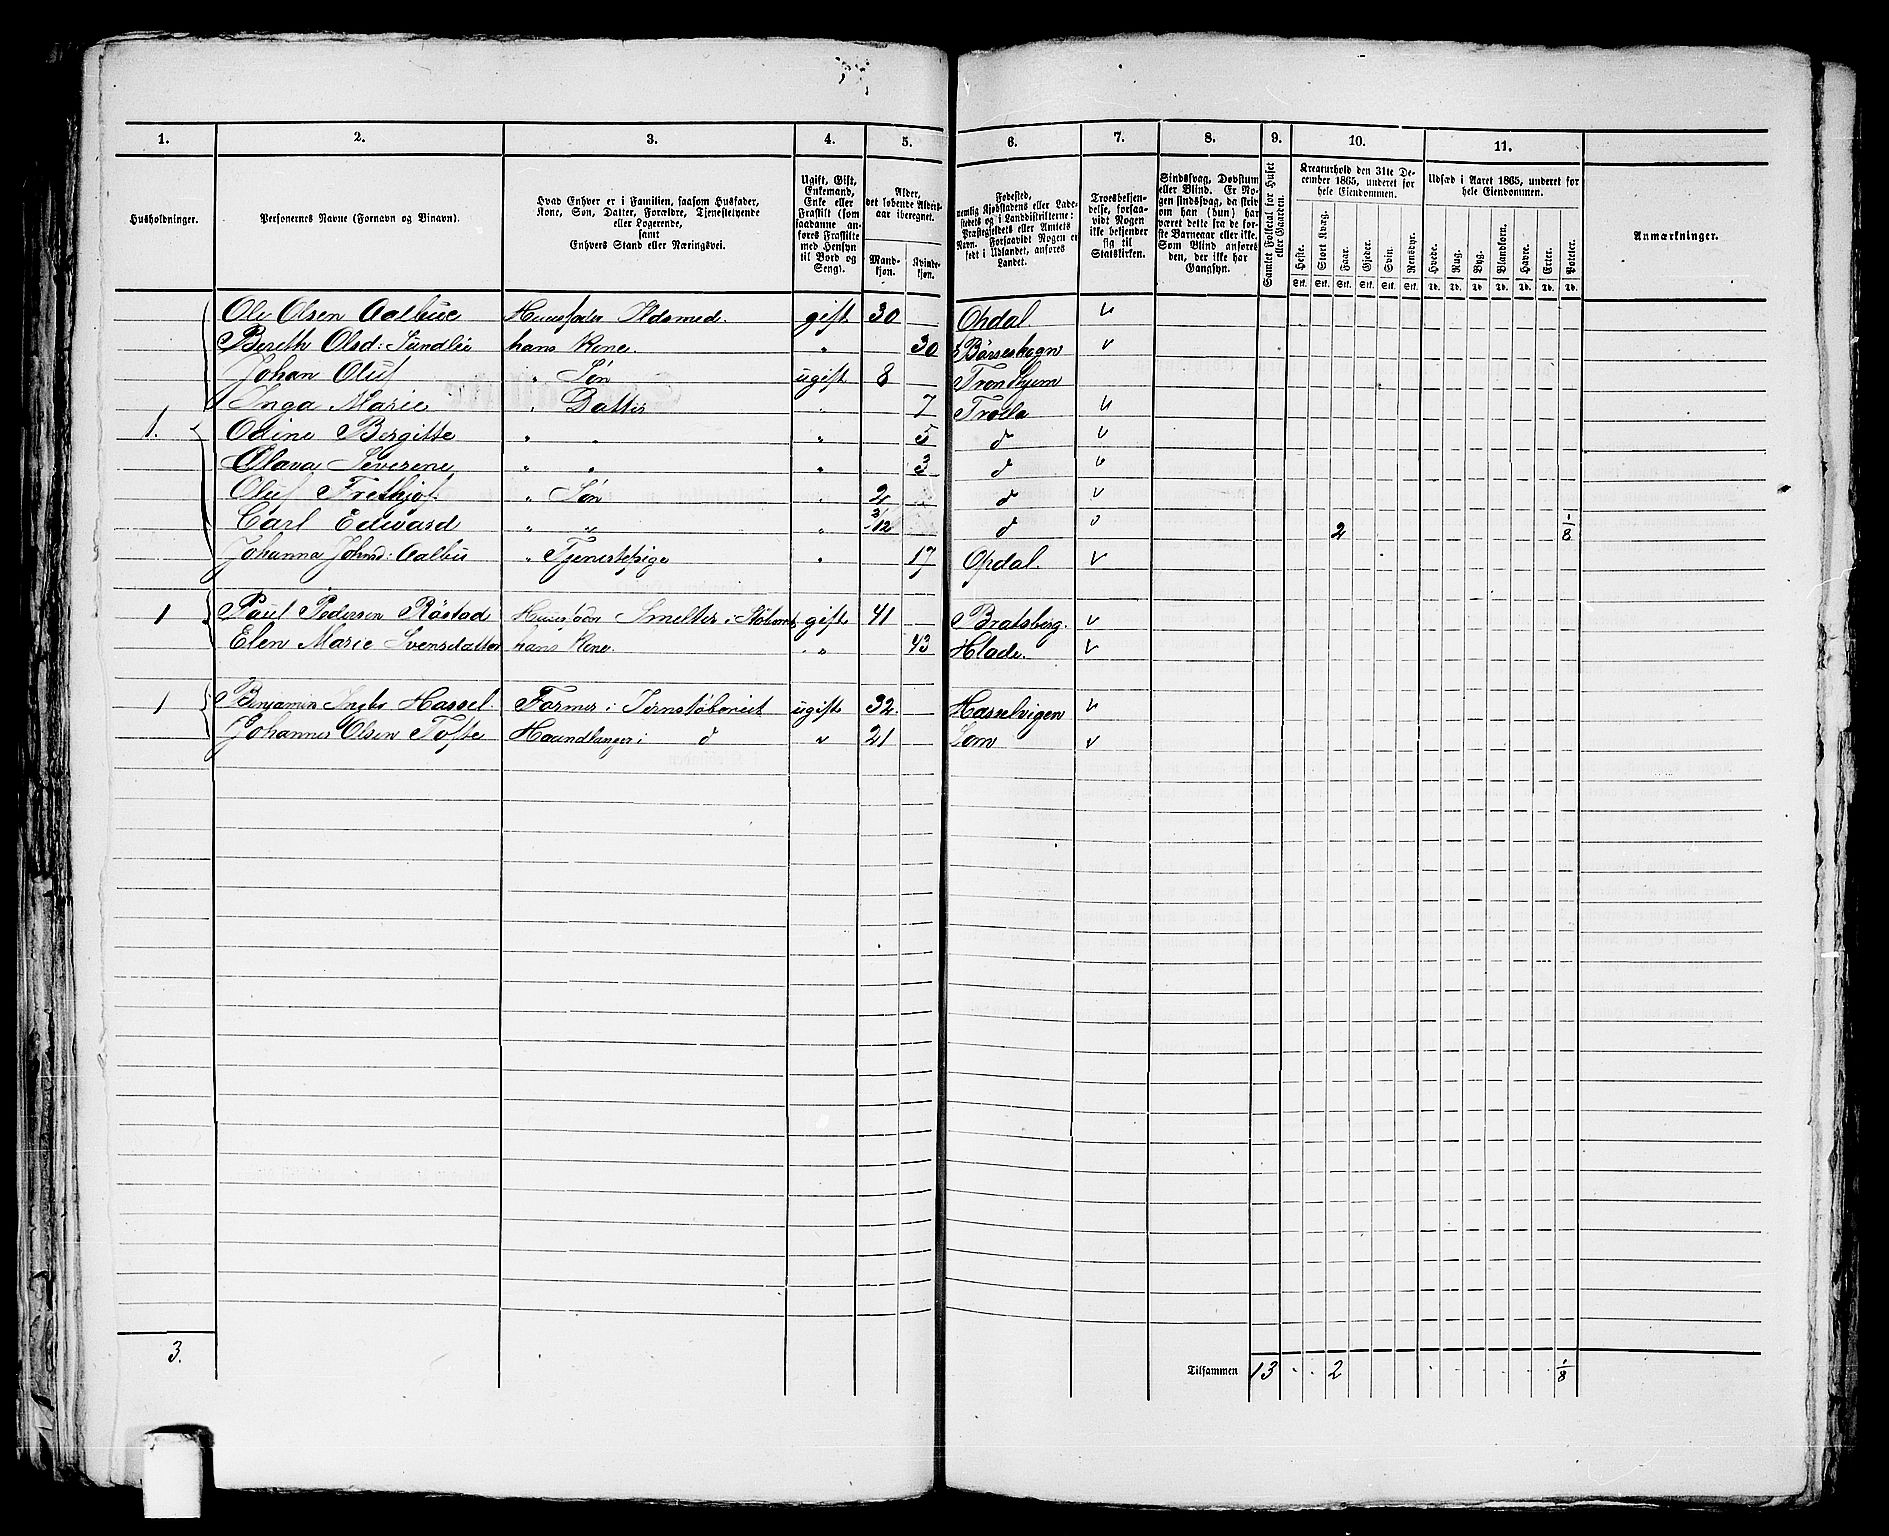 1. 2. 3. 4. 5. 6. 7. 8. 9. 10. 11.
Husholdninger.
Personernes Navne (Fornavn og Binavn).
Hvad Enhver er i Familien, saasom Husfader,
Kone, Søn, Datter, Forældre, Tjenestetyende
eller Logerende,
samt
Enhvers Stand eller Næringsvei.
Ugift, Gift,
Enkemand,
Enke eller
Fraskilt (som
saadanne an-
føres Fraskilte
med Hensyn
til Bord og
Seng).
Alder,
det løbende Alders-
aar iberegnet.
Mand-
kjøn.
Kvinde-
kjøn.
Fødested,
nemlig Kjøbstadens eller Lade-
stedets og i Landdistrikterne:
Præstegjeldets eller Amtets
Navn. Forsaavidt Nogen er
født i Udlandet, anføres
Landet.
Troesbekjen-
delse, forsaa-
vidt Nogen
ikke bekjender
sig til
Statskirken.
Sindssvag, Døvstum
eller Blind. Er No-
gen sindssvag, da skriv
om han (hun) har
været dette fra de før-
ste Barneaar eller ikke.
Som Blind anføres
den, der ikke har
Gangsyn.
Samlet Folketal for Huset
eller Gaarden.
Kreaturhold den 31te De-
cember 1865, underet for
hele Eiendommen.
Heste. Stort Kvæg. Faar. Gjeder. Svin. Rensdyr.
Stk. Stk. Stk. Stk. Stk. Stk.
Udsæd i Aaret 1865, underet for
hele Eiendommen.
Hvede. Rug. Byg. Blandkorn. Havre. Erter. Poteter.
Td. Td. Td. Td. Td. Td. Td.
Anmærkninger.
Ole Olsen Aalbue Huusfader Isdsmed. gift 30 Opdal
Bereth Olsd: hans Kone. " 30 Børseskogn
Johan Oluf " Søn ugift 8 Trondhjem
Inga Marie " Datter " 7
1. Odine Bergitte " " " 5 d
Olava Severene " " " 3 d
Oluf Frethjof " Søn " 2 d
Carl Edward " " " 3/12 d 2 1/8
Johanna Johnsd: Aalbu " Tjenestepige " 17 Opdal.
1 Paul Pedersen Røstad Huusfader Smelter i gift 41 Bratsberg.
Elen Marie Svensdatter hans Kone. " 43 Hlade.
1 Benjamin Hassel. Former i Jernstøberiet ugift 32. Hasselvigen
Johannes Olsen Tofte Haandlanger i d " 21 Lom
3. Tilsammen 13 . . 2 1/8